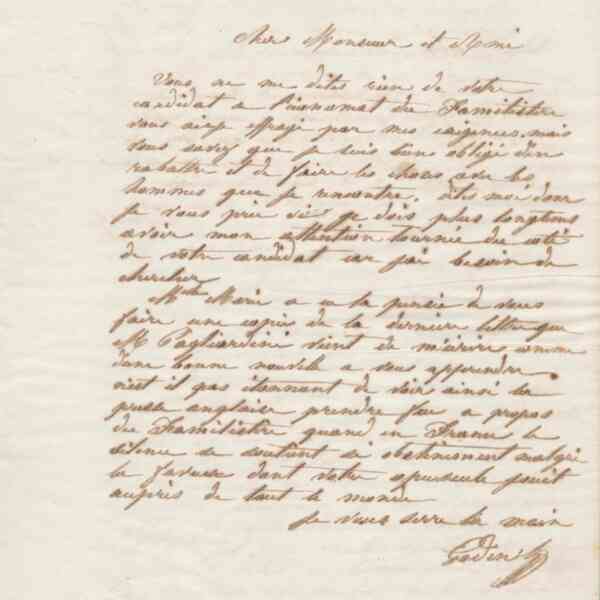 Cher Monsieur et Ami
Vous ne me dites rien de votre
candidat a l'économat du Familistère
vous ai-je effrayé par mes exigences, mais
vous savez que je suis bien obligé d'en
rabattre et de faire les choses avec les
hommes que je rencontre. dites moi donc
je vous prie si je dois plus longtems
avoir mon attention tournée du coté
de votre candidat car j'ai besoin de
chercher
Mlle Marie a eu la pensée de vous
faire une copie de la dernière lettre que
M Pagliardini vient de m'écrire, comme
d'une bonne nouvelle a vous apprendre.
n'est il pas étonnant de voir ainsi la
presse anglaise prendre feu a propos
du Familistère quand en France le
silence se soutient si obstinément malgré
la faveur dont votre opuscule jouit
auprès de tout le monde
Je vous serre la main
Godin